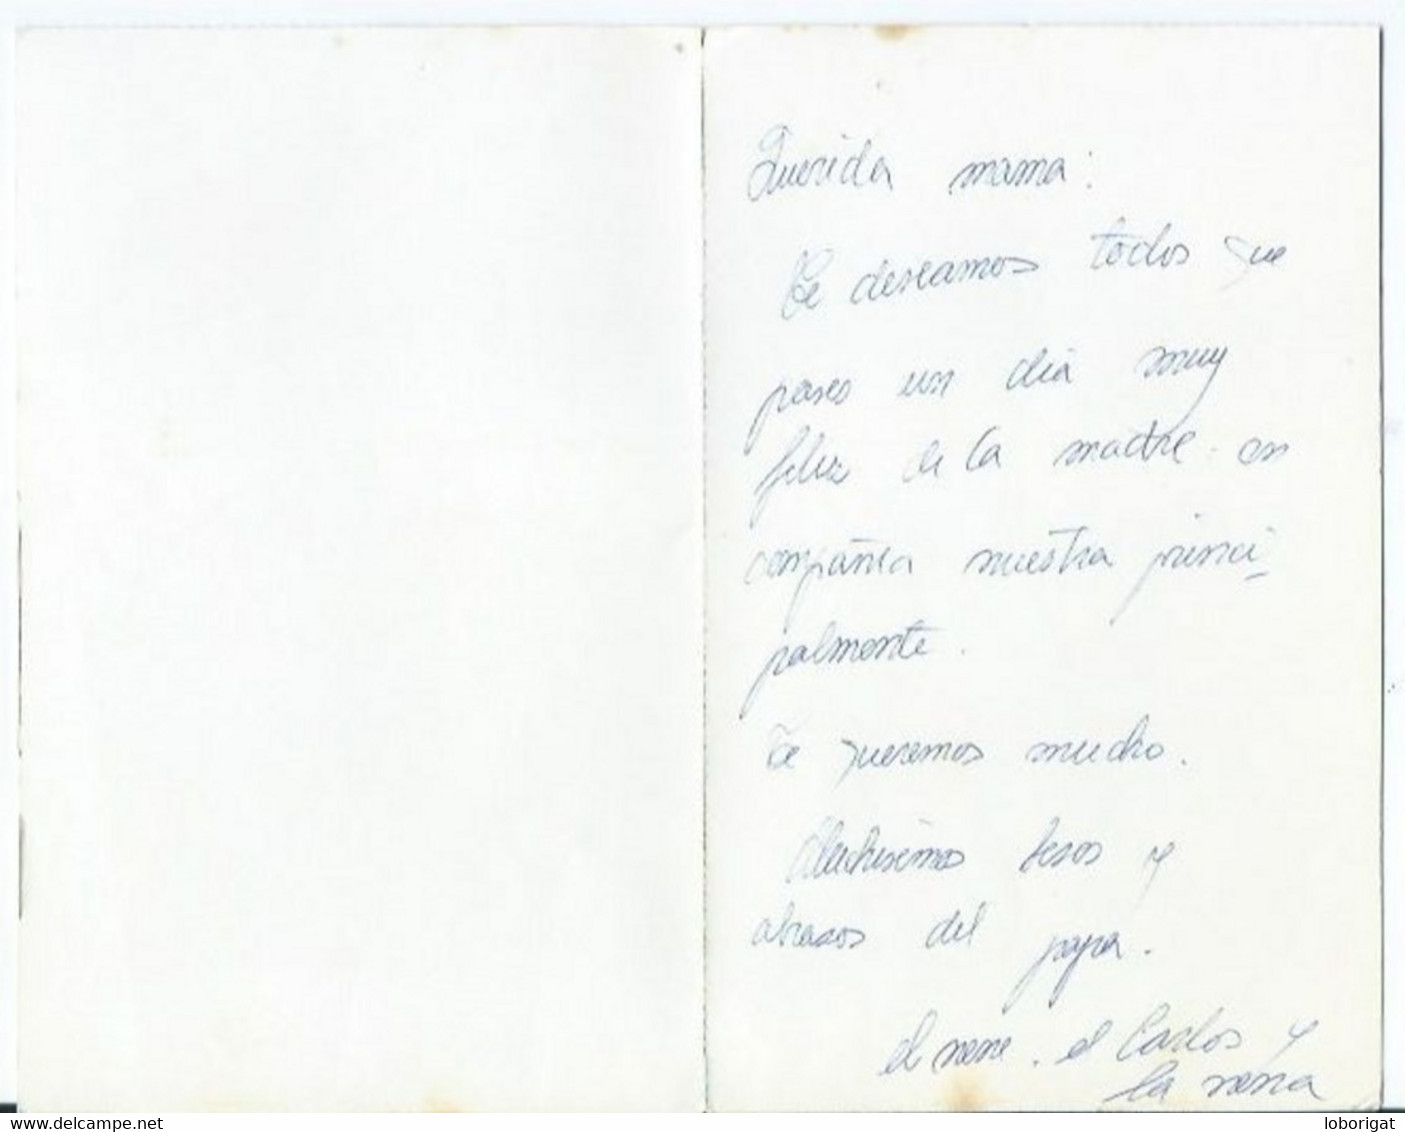 Querida mama:
Te deseamos todos que
pases un dia muy
feliz de la madre en
compañia nuestra princi-
palmente.
Te queremos mucho.
Muchisimos besos y
abrasos del papa.
el nene. el Carlos y
la nena
www.delcampe.net
loborigat